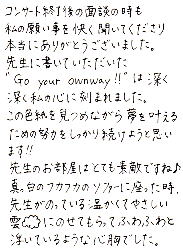 コンサート終了後の面談の時も
私の願い事を快く聞いてくださり
本当にありがとうございました。
先生に書いていただいた
"Go your ownway!!"は深く
深く私の心に刻まれました。
この色紙を見つめながら夢を叶える
ための努力をしっかり続けようと思い
ます!!
先生のお部屋はとても素敵ですね♪
真っ白のフカフカのソファーに座った時、
先生がのっている温かくてやさしい
雲にのせてもらってふわふわと
浮いているような心胸でした。